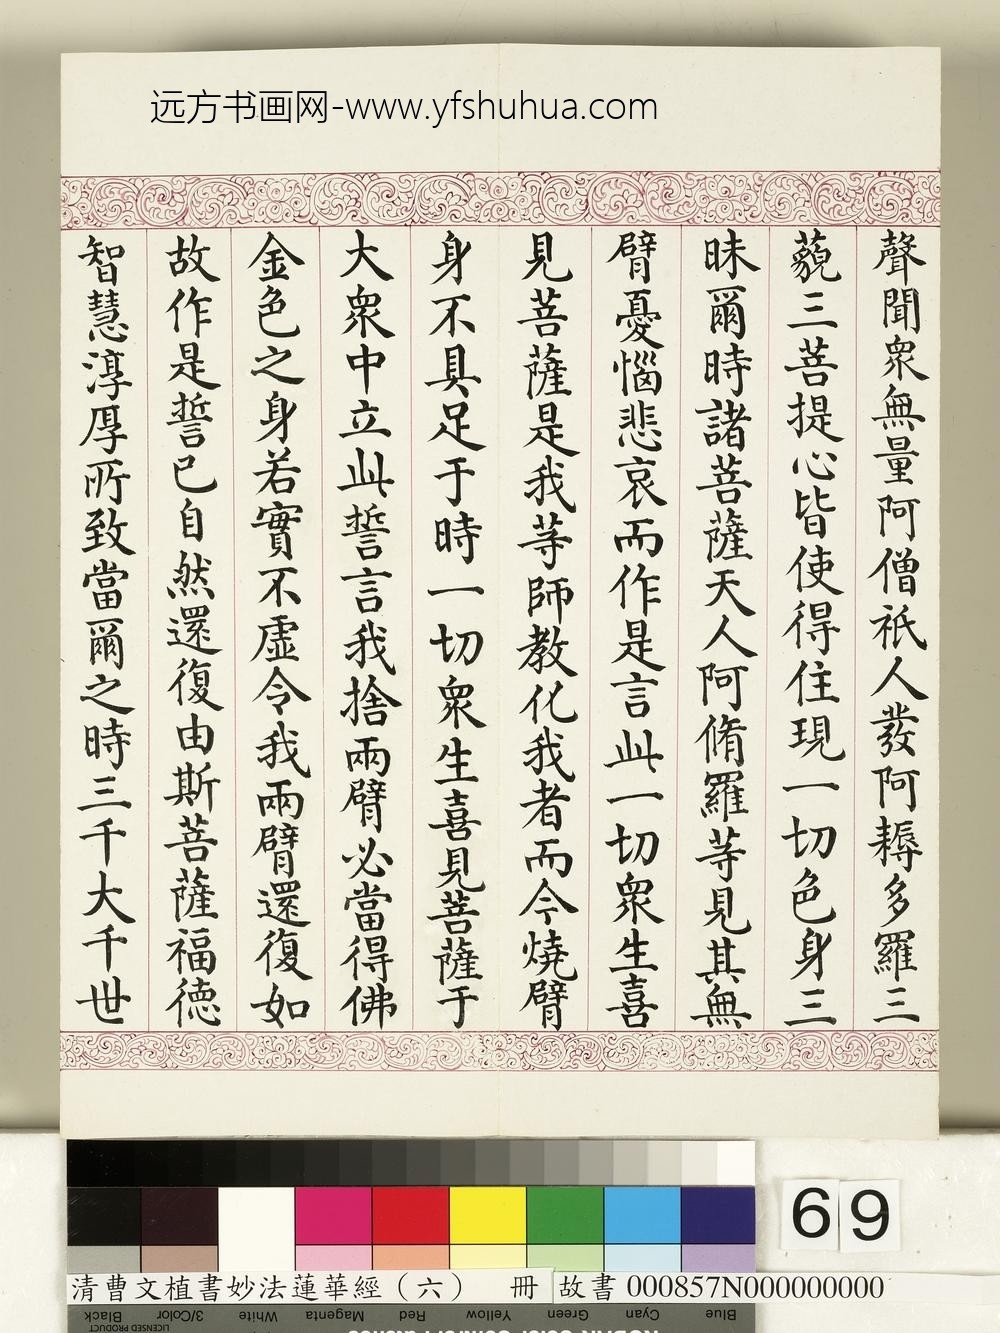 远方书画网-www.yfshuhua.com
聲聞衆無量阿僧祇人發阿耨多羅三
藐三菩提心皆使得住現一切色身三
昧爾時諸菩薩天人阿脩羅等見其無
臂憂惱悲哀而作是言此一切衆生喜
見菩薩是我等師教化我者而今燒臂
身不具足于時一切衆生喜見菩薩于
大衆中立此誓言我捨兩臂必當得佛
金色之身若實不虛令我兩臂還復如
故作是誓已自然還復由斯菩薩福德
智慧淳厚所致當爾之時三千大千世
69
清曹文植書妙法蓮華經（六） 冊 故書 000857N000000000
Black 3/Color White Magenta Red Yellow Green Cyan Blue
LICENSED PRODUCT